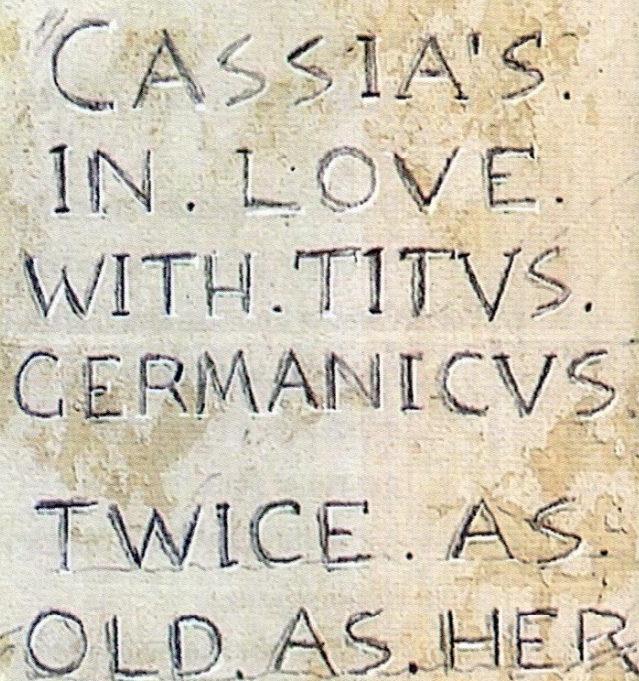 "CASSIA'S.
IN. LOVE.
WITH. TITVS.
GERMANICVS
TWICE. AS.
OLD. AS. HER